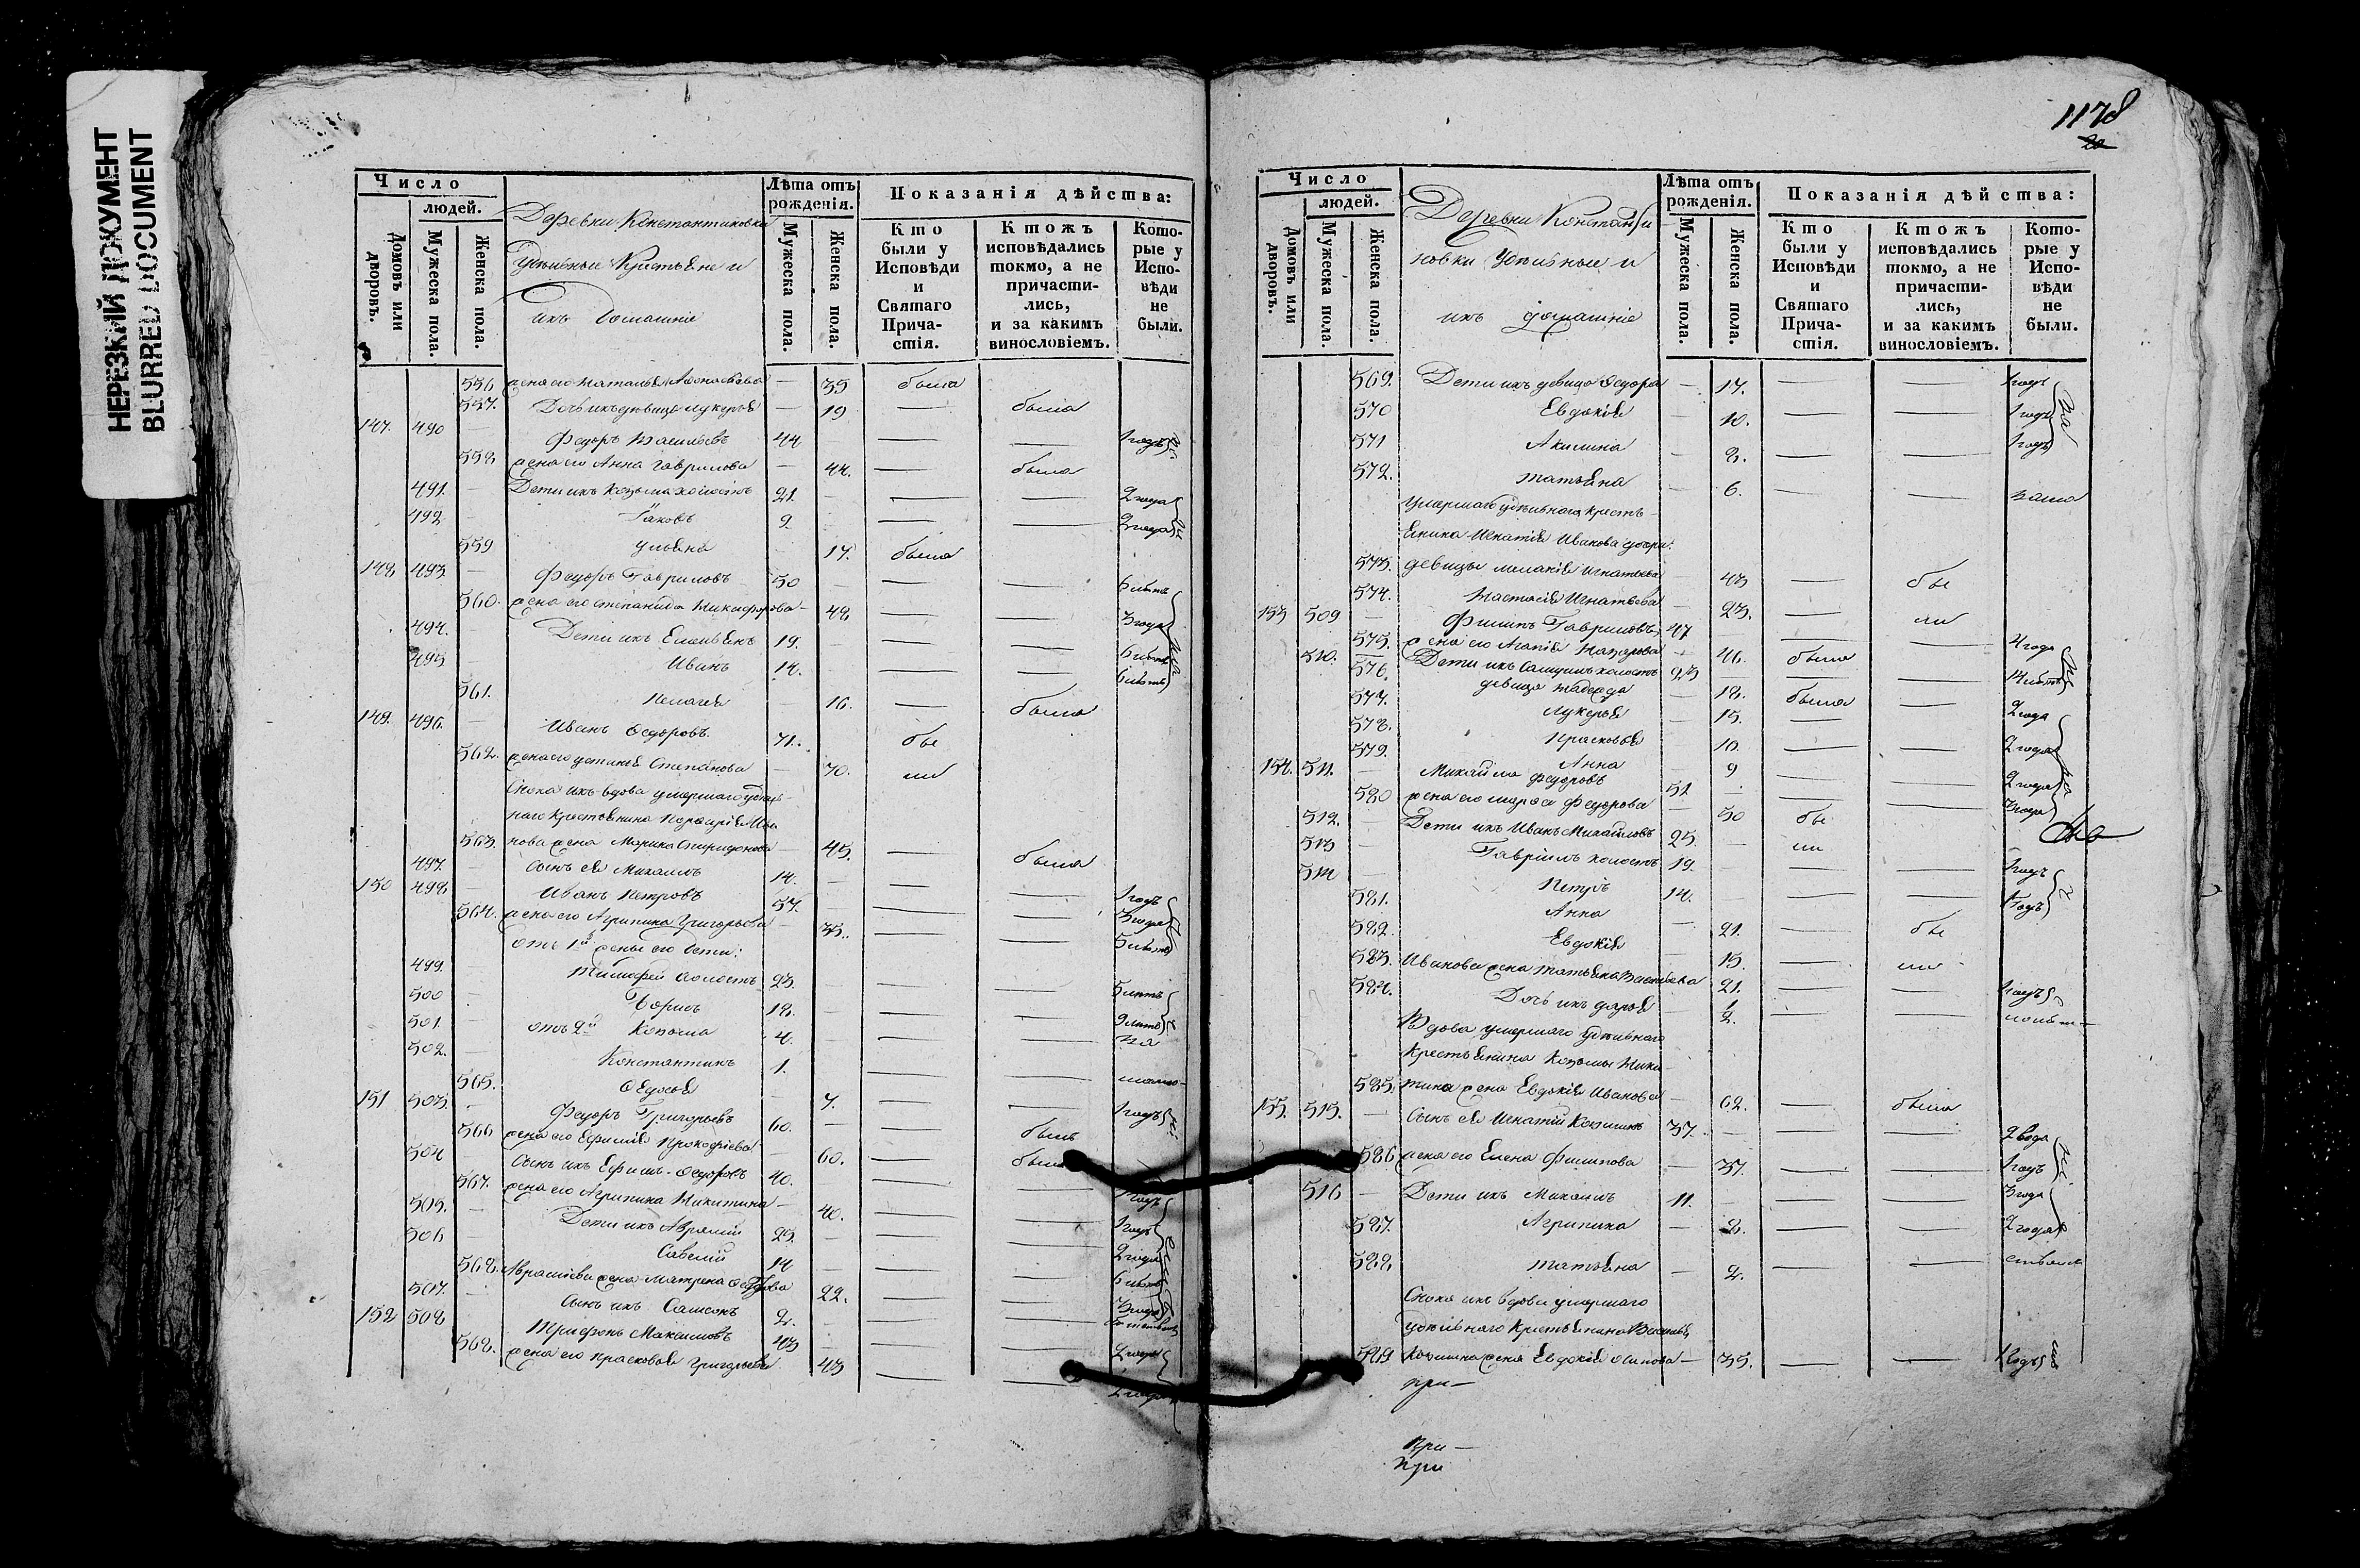 НЕРЕЗКИЙ ДОКУМЕНТ
BLURRED DOCUMENT
Число
людей.
Домовъ или дворовъ.
Мужеска пола.
Женска пола.
Деревни Константиновки
Удѣльные Крестьяне и
ихъ домашніе
Лѣта отъ рожденія.
Мужеска пола.
Женска пола.
Показанія дѣйства:
Кто были у Исповѣди и Святаго Прича-стія.
Ктожъ исповѣдались токмо, а не причасти-лись, и за какимъ винословіемъ.
Кото-рые у Испо-вѣди не были.
556 жена его Наталья — 35 была
557. Дочь ихъ дѣвица Лукерья — 19 — была
147. 490 — Федоръ 44 — — 1 годъ
558 жена его Анна Гаврилова — 44. — была
491. — Дети ихъ Козьма холостъ 21. — — — 2 года
492 — Яковъ 9 — — 2 года
559 Ульяна — 17. была
148 493. — Федоръ Гавриловъ 50 — — 6 лѣтъ
560. жена его Степанида Никифорова — 48 — — 3 года
494. Дети ихъ Емельянъ 19. — — — 6 лѣтъ
495 — Иванъ 14. — — — 6 лѣтъ
561. Пелагея — 16. — была
149. 496. — Иванъ Федоровъ 71. бы
562. жена его Устинья Степанова — 70. ли
Сноха ихъ вдова умершаго удѣль-
наго Крестьянина
563. нова жена Марина Спиридонова — 45. — была
497. — сынъ ея Михаилъ 14. — — —
150 498 — Иванъ Петровъ 57. — — — 1 годъ
564. жена его Агрипина Григорьева — 35. — — 3 года
отъ 1й жены его дети: — — 5 лѣтъ
499. — Тимофей холостъ 23.
500 — Борисъ 18. — — — 5 лѣтъ
501 — отъ 2й Козьма 4. — — —
502. — Константинъ 1. — — —
565. Федосья — 7. — —
151 503. — Федоръ Григорьевъ 60. — — — 1 годъ
566 жена его Ефимия Прокофіева — 60. — былъ
504 — сынъ ихъ Ефимъ Федоровъ 40. — — была
567. жена его Агрипина Никитина — 40. — — 1 годъ
505. — Дети ихъ Авраамій 25. — — — 1 годъ
506 — Савелій 14 — — — 2 года
568. жена Матрена — 22. — — 6 лѣтъ
507. — сынъ ихъ Самсонъ 2. — — — 3 года
152 508 Трифонъ Максимовъ 43 — —
568. жена его Прасковья Григорьева — 43 — —
1178
Число
людей.
Домовъ или дворовъ.
Мужеска пола.
Женска пола.
Деревни Константи
новки Удѣльные и
ихъ домашніе
Лѣта отъ рожденія.
Мужеска пола.
Женска пола.
Показанія дѣйства:
Кто были у Исповѣди и Святаго Прича-стія.
Ктожъ исповѣдались токмо, а не причасти-лись, и за какимъ винословіемъ.
Кото-рые у Испо-вѣди не были.
569. Дети ихъ девица Федора — 17. — — 1 годъ
570 Евдокія — 10. — — 1 годъ
571 Акилина — 8. — — 1 годъ
572. Татьяна — 6. — —
умершаго удѣльнаго кресть-
янина Игнатія Иванова дочери:
573. девицы Меланія Игнатьева — 43 — бы
574. Настасія Игнатьева — 23. — ли
153 509 — Филипъ Гавриловъ 47 — — — 4 года
575. жена его Агапія Назарова — 46. была
510. Дети ихъ холостъ 23 — — — 14 лѣтъ
576. девица Надежда — 18. была
577. Лукерья — 15. — — 2 года
578. Прасковья — 10. — — 2 года
579. Анна — 9 — — 2 года
154. 511. — Михайла Федоровъ 51. — — — 3 года
580 жена его Марфа Федорова — 50 бы
512. — Дети ихъ Иванъ Михайловъ 25. — ли
513 — Гаврилъ холостъ 19. — — — 1 годъ
514 — Петръ 14. — — — 1 годъ
581. Анна — 21. — бы
582. Евдокія — 15. — ли
583. Иванова жена Татьяна — 21. — — 1 годъ
584. Дочь ихъ Дарья — 2. — —
Вдова умершаго удѣльнаго
Крестьянина Козьмы Ники-
585. тина жена Евдокія Иванова — 62. — была
155. 515. — Сынъ ея Игнатій Козминъ 37. — — — 2 года
586 жена его Елена Филипова — 37. — — 1 годъ
516 — Дети ихъ Михаилъ 11. — — — 3 года
587. Агрипина — 8. — — 2 года
588 Татьяна — 2. — —
Сноха ихъ вдова умершаго
удѣльнаго Крестьянина
589 Козмина жена Евдокія Осипова — 35. — — 1 годъ
при—
при—
при